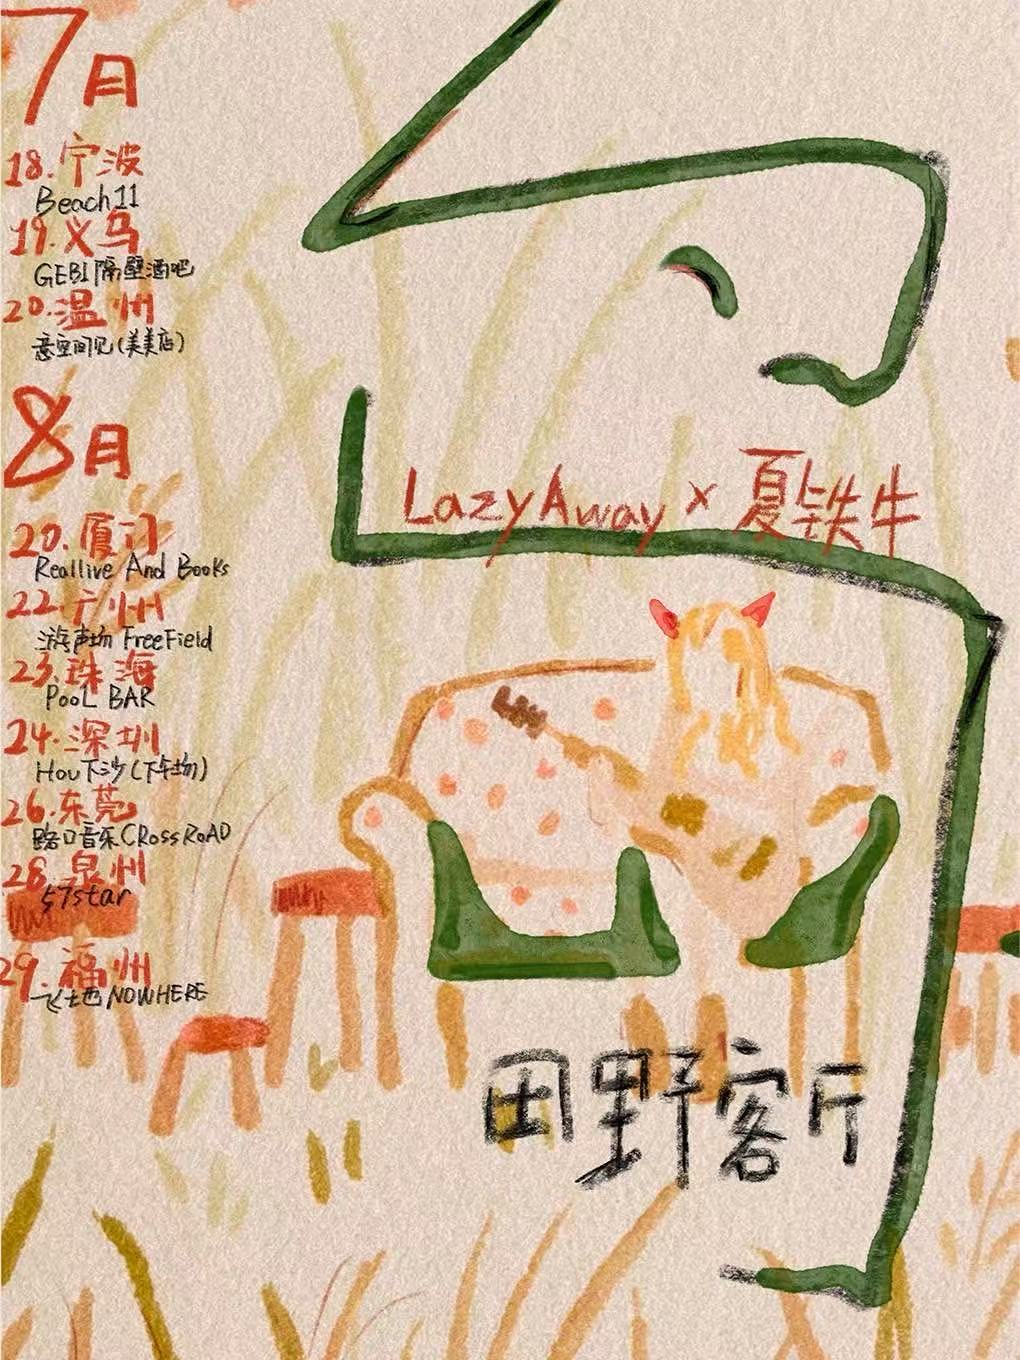 7月
18.宁波
Beach11
19.义乌
GEBI隔壁酒吧
20.温州
悟空间见(美美店)
8月
20.厦门
Reallive And Books
22.广州
游声场 FreeField
23.珠海
PooL BAR
24.深圳
Hou下沙(下午场)
26.东莞
路口音乐CRossRoAD
28.泉州
57star
29.福州
飞地 NOWHERE
LazyAway×夏铁牛
田野客厅